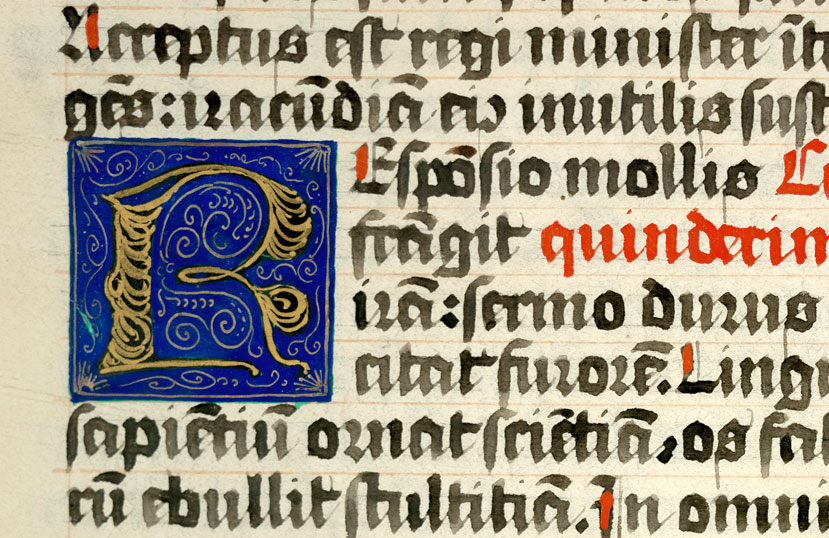 Acceptus est regi minister īte
gēs: iracūdiā eiꝰ inutilis sust
REspōsio mollis
frāgit quindecim
irā: sermo durus
citat furorē. Lingu
sapiētiū ornat sciētiā, os fat
rū ebullit stultitiā. In omni